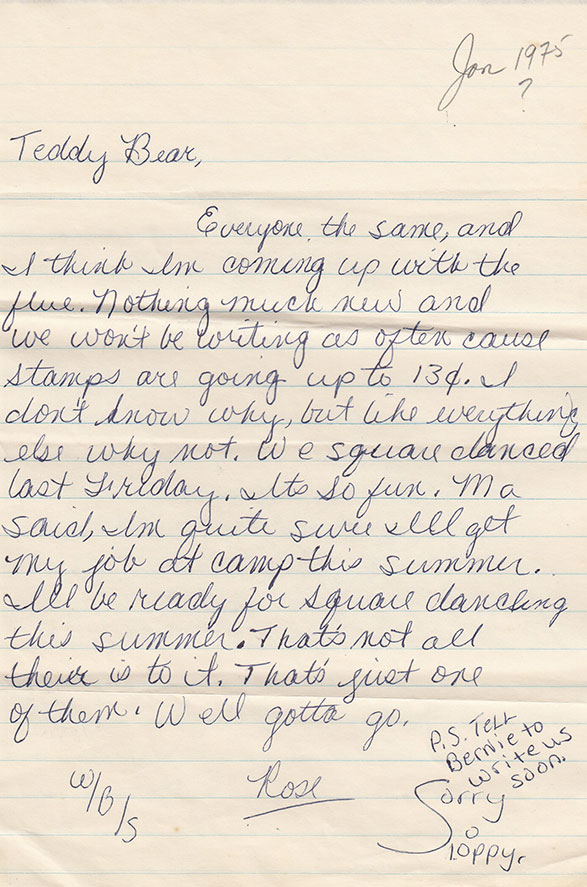 Jan 1975
?
Teddy Bear,
Everyone the same, and
I think Im coming up with the
flue. Nothing much new and
we won't be writing as often cause
stamps are going up to 13¢. I
don't know why, but like everything
else why not. We square danced
last Friday. Its so fun. Ma
said, Im quite sure Ill get
my job at camp this summer.
Ill be ready for square dancing
this summer. That's not all
their is to it. That's just one
of them. Well gotta go.
Rose
W/B/S
P.S. Tell
Bernie to
write us
soon.
Sorry
So
Sloppy.